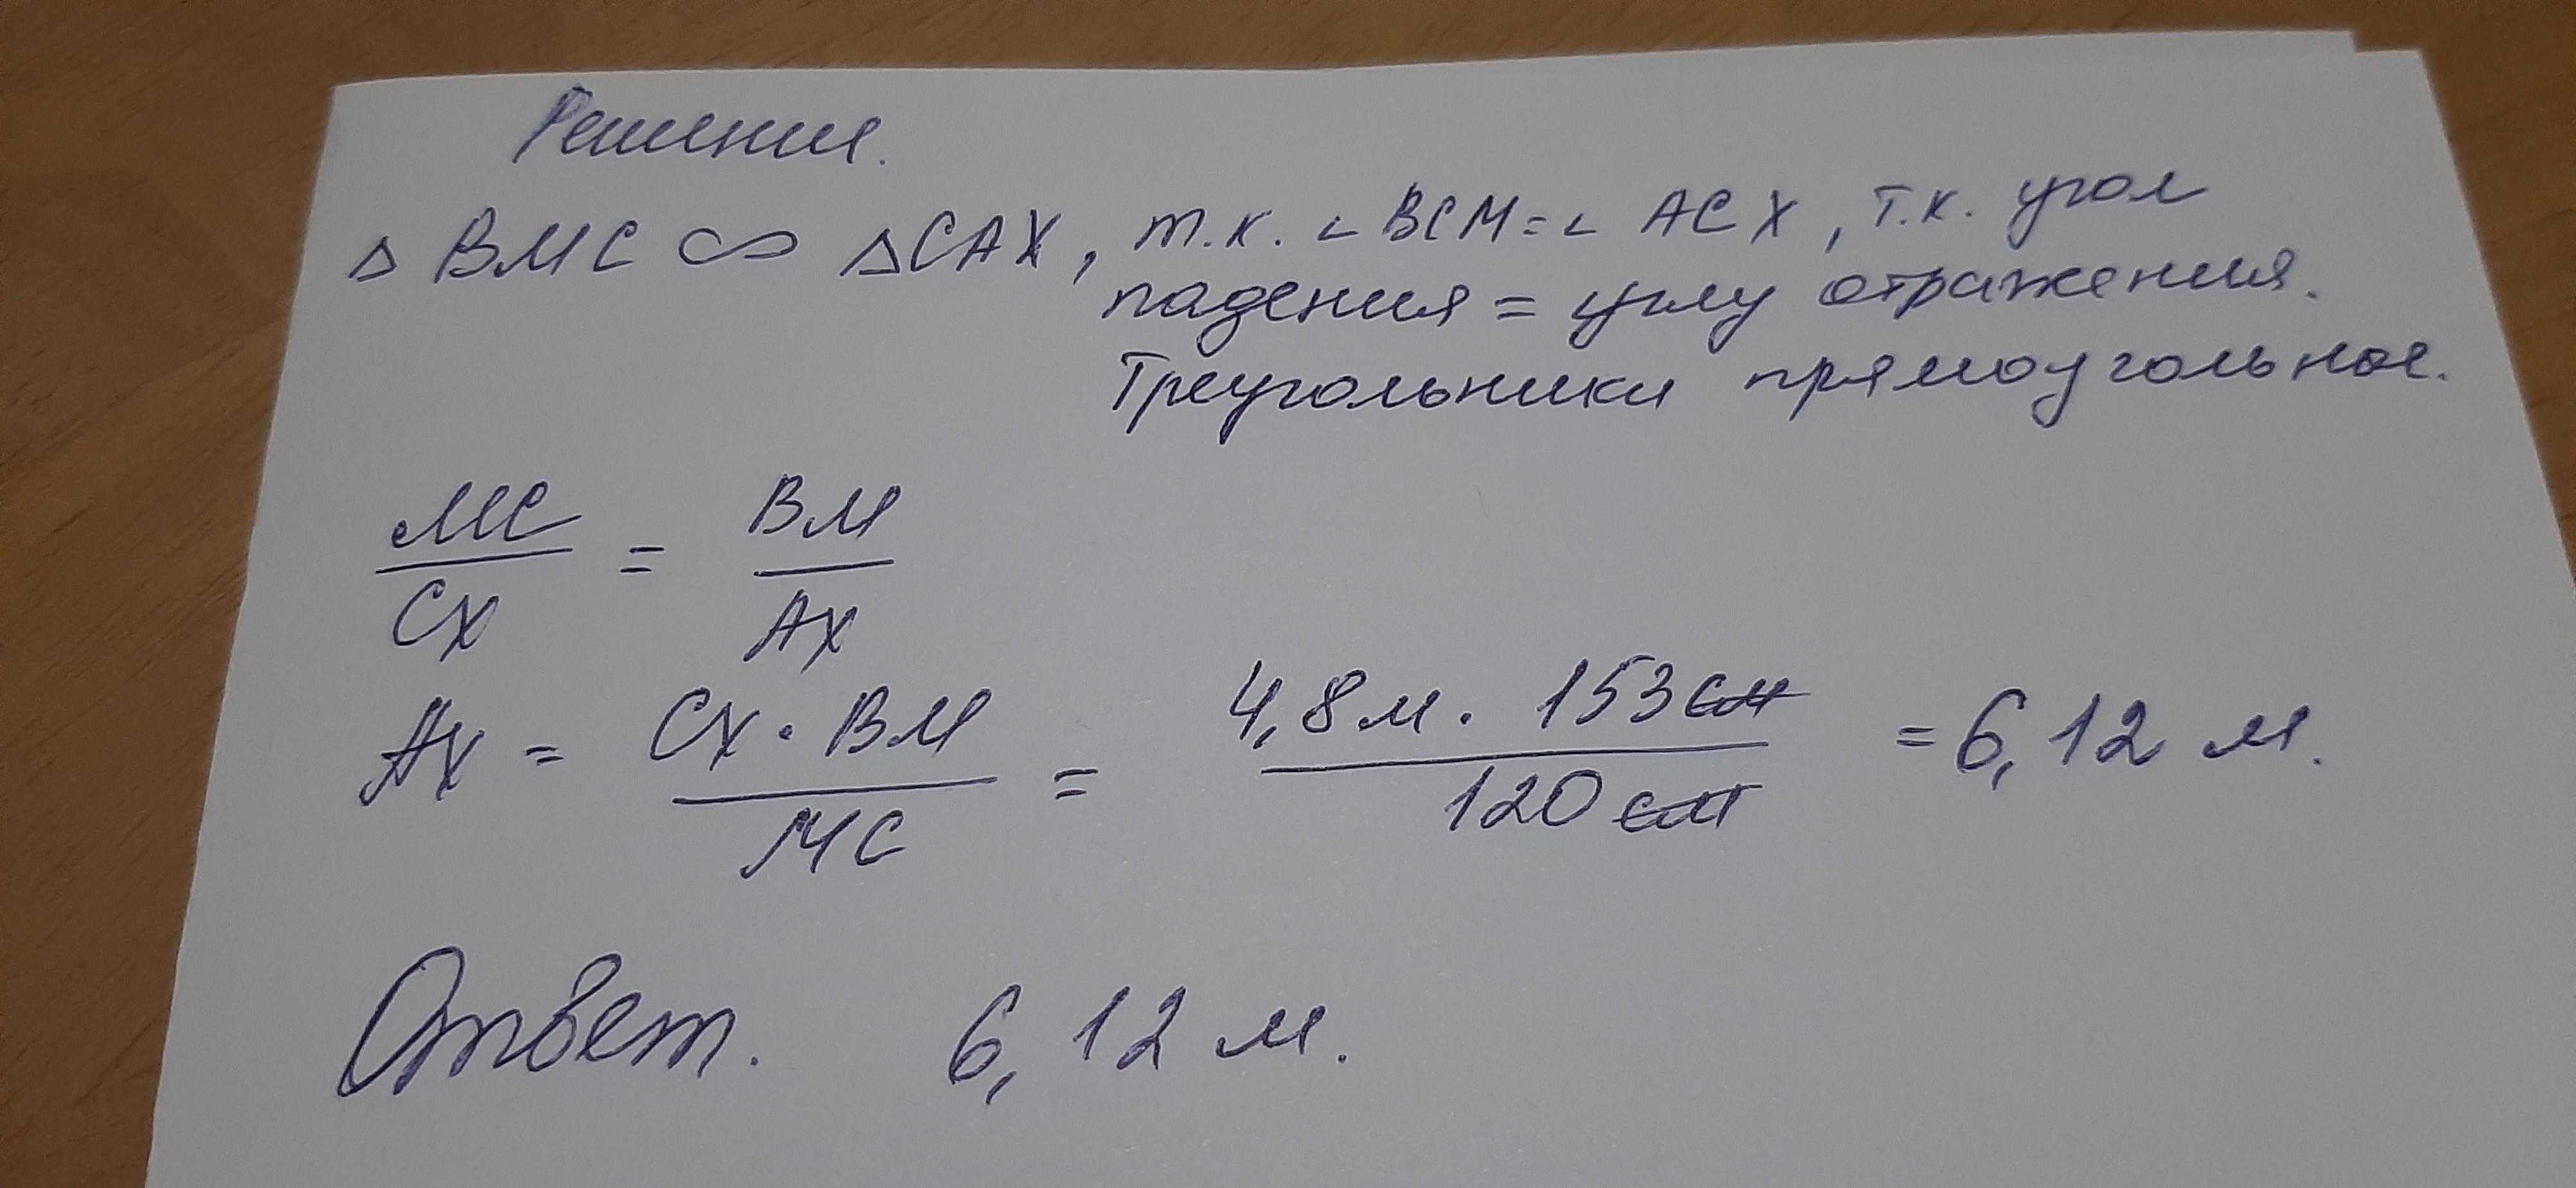 Решение.
Δ BMC ∞ ΔCAX, т.к. ∠ BCM = ∠ ACX, т.к. угол
падения = углу отражения.
Треугольники прямоугольные.
MC/CX = BM/AX
AX = CX · BM / MC = 4,8 м · 153 см / 120 см = 6,12 м.
Ответ. 6,12 м.